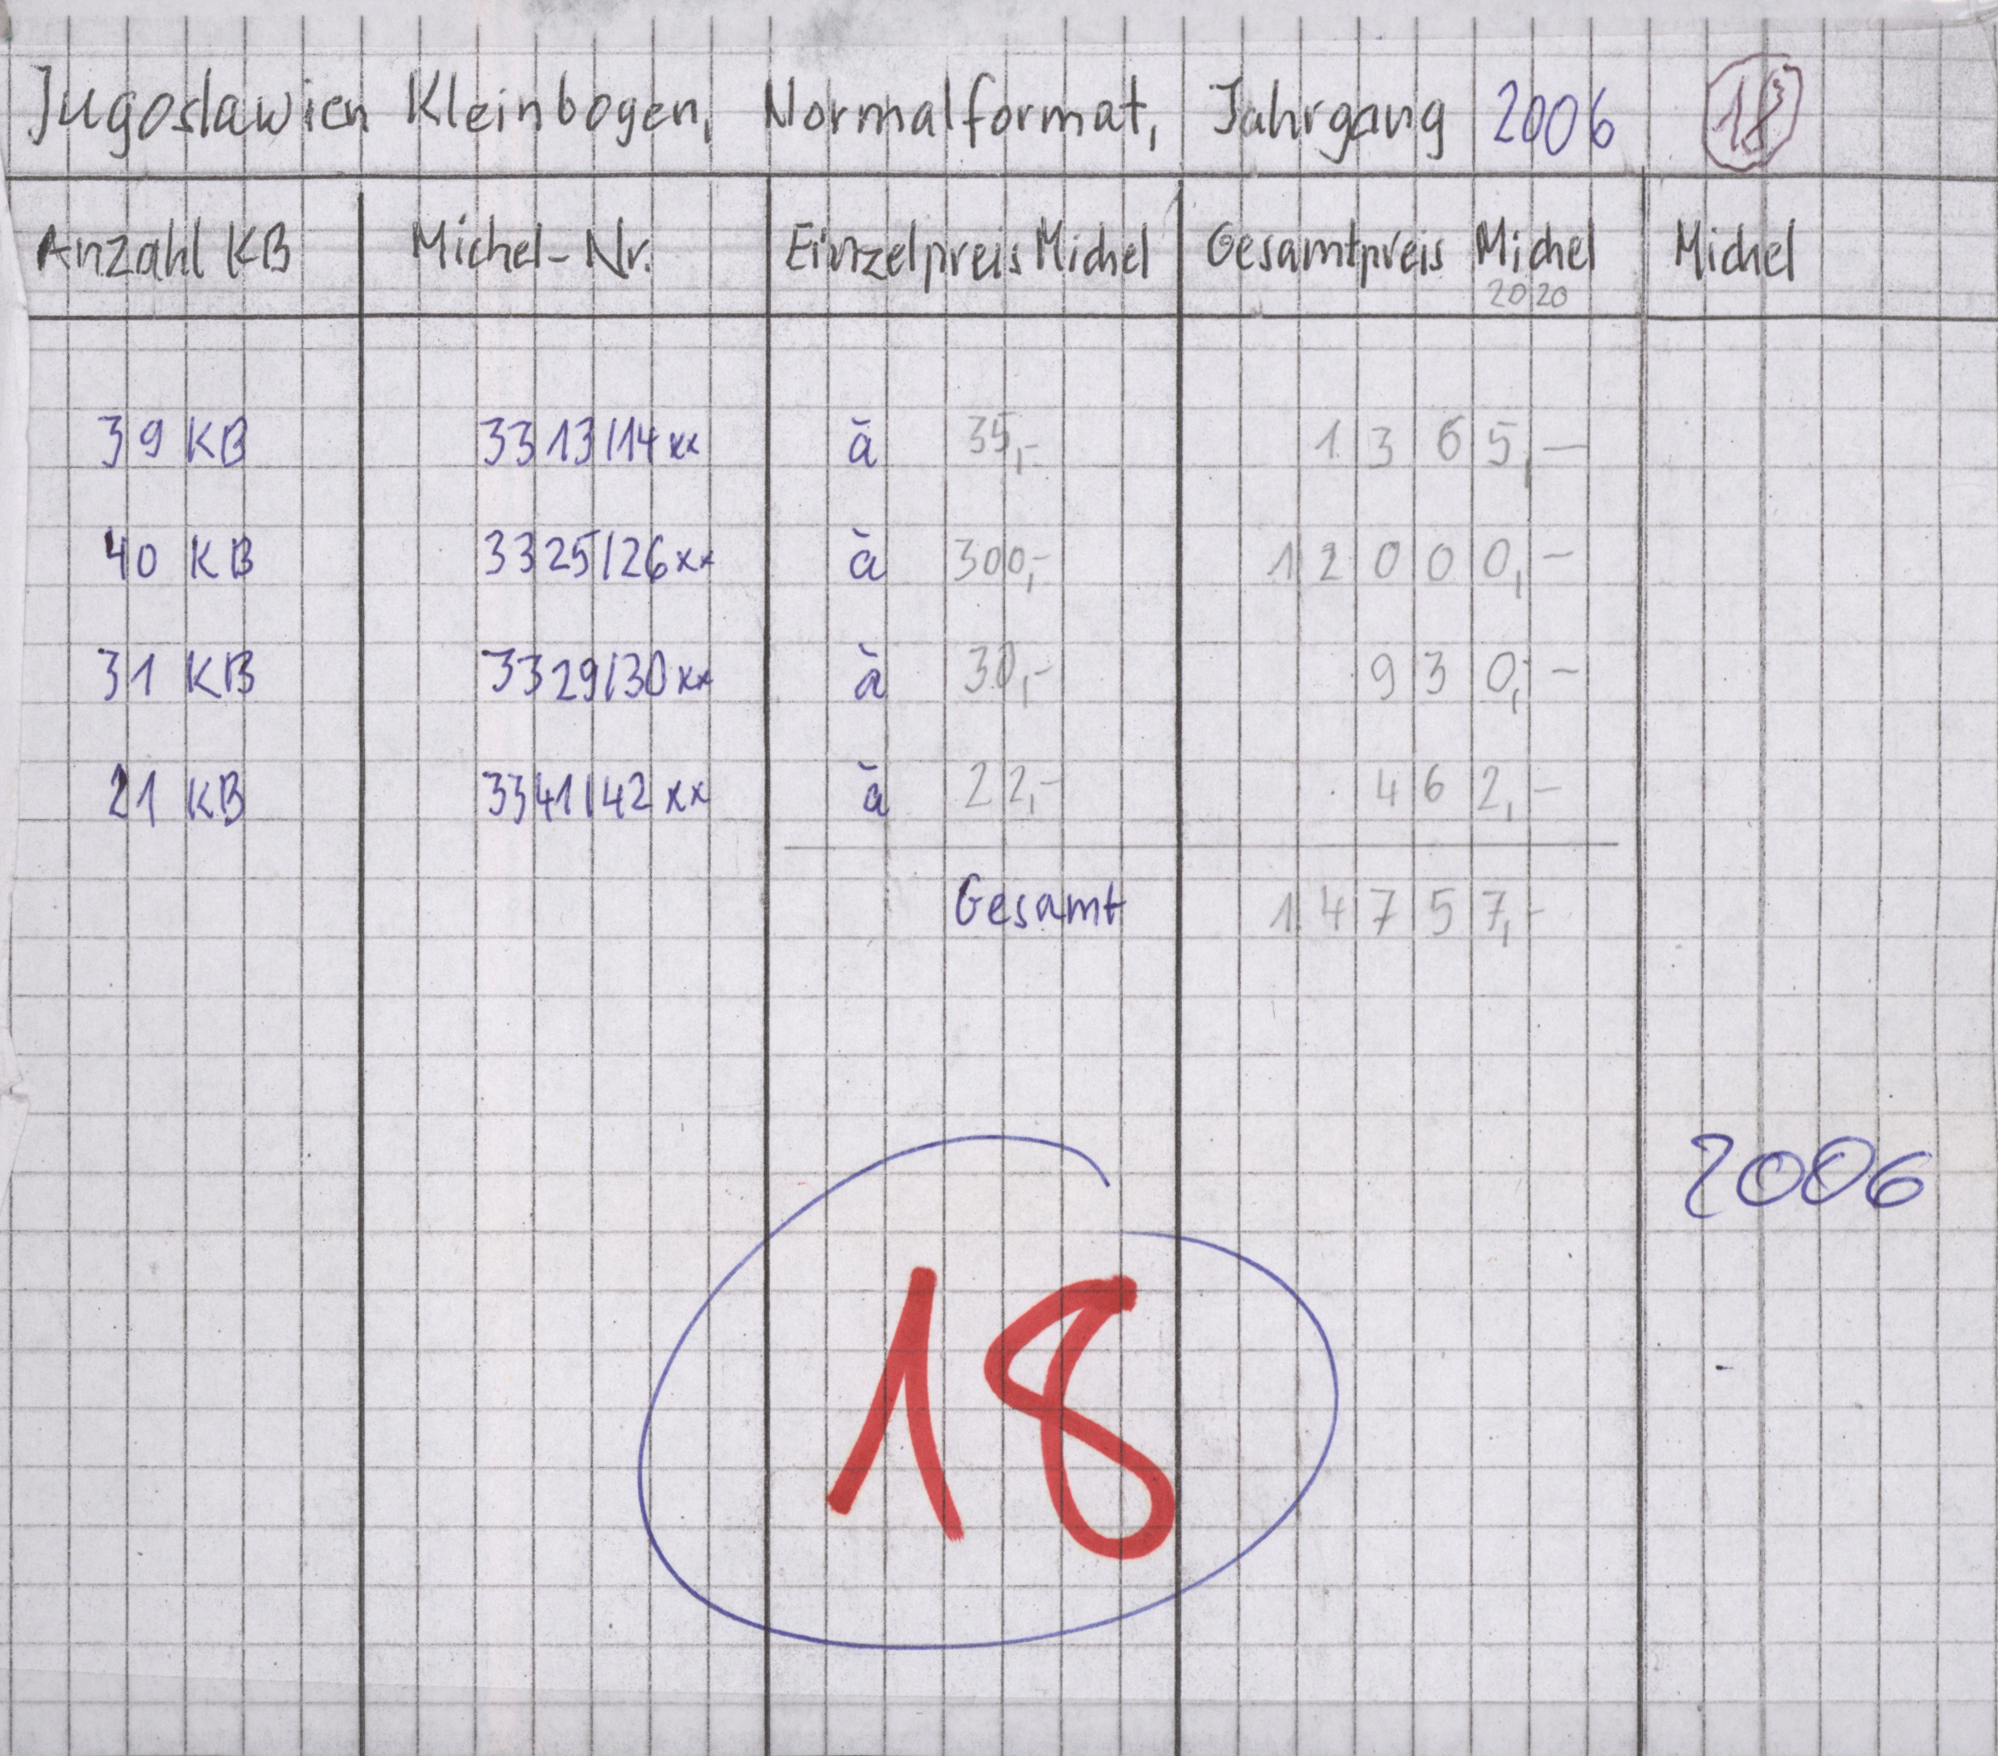 Jugoslawien Kleinbogen, Normalformat, Jahrgang 2006 18
Anzahl KB Michel-Nr. Einzelpreis Michel Gesamtpreis Michel 2020 Michel
39 KB 3313/14xx à 35,- 1365,-
40 KB 3325/26xx à 300,- 12000,-
31 KB 3329/30xx à 30,- 930,-
21 KB 3341/42xx à 22,- 462,-
Gesamt 14757,-
2006
18